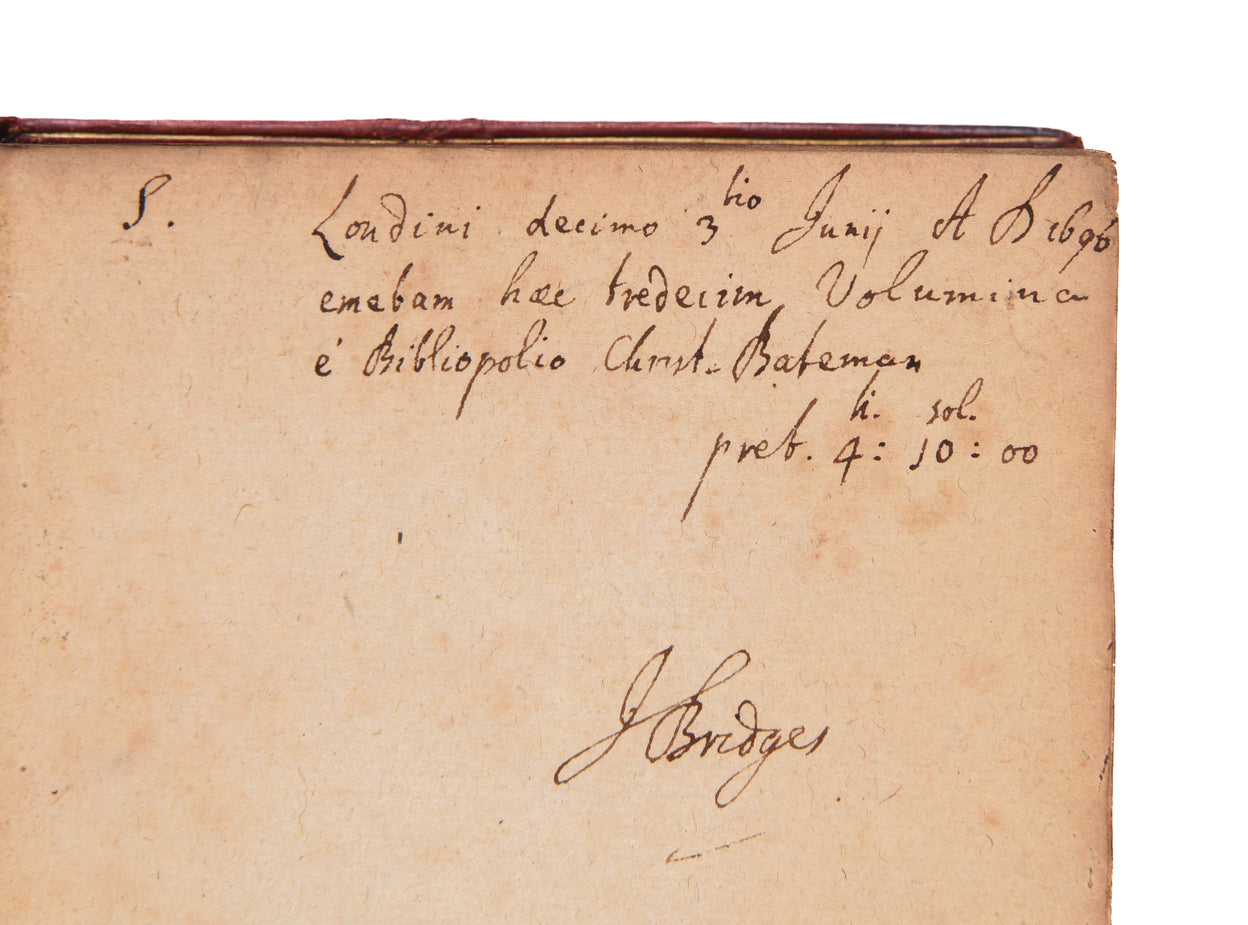 S. Londini decimo 3tio Junij A D 1696
emebam hæc tredecim Volumina
é Bibliopolio Christ. Bateman
li. sol.
pret. 4 : 10 : 00
J Bridges